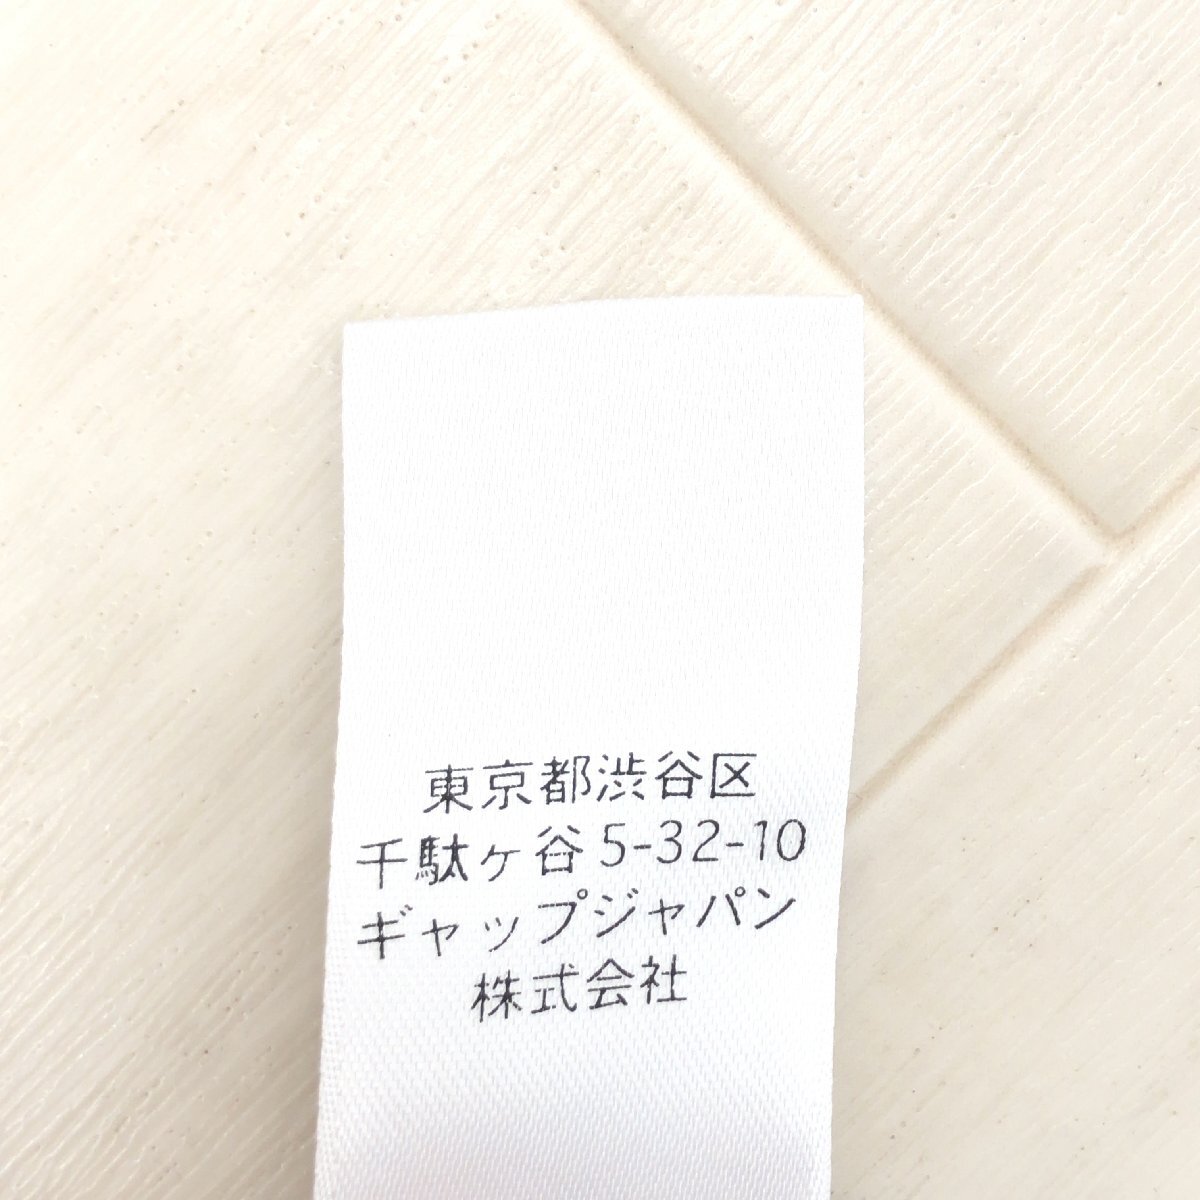 東京都渋谷区
千駄ヶ谷5-32-10
ギャップジャパン
株式会社